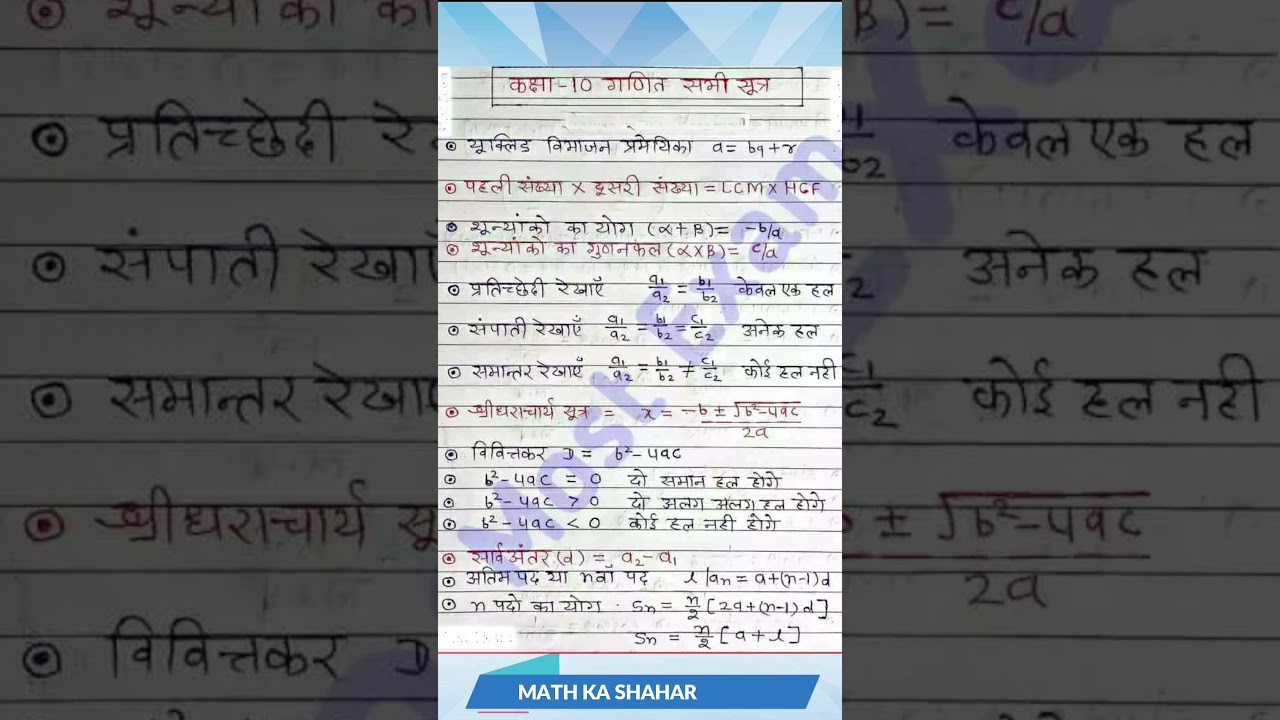 कक्षा-10 गणित सभी सूत्र
यूक्लिड विभाजन प्रमेयिका a = bq + r
पहली संख्या × दूसरी संख्या = LCM × HCF
शून्यांको का योग (α+β) = -b/a
शून्यांको का गुणनफल (α×β) = c/a
प्रतिच्छेदी रेखाएँ a₁/a₂ = b₁/b₂ केवल एक हल
संपाती रेखाएँ a₁/a₂ = b₁/b₂ = c₁/c₂ अनेक हल
समान्तर रेखाएँ a₁/a₂ = b₁/b₂ ≠ c₁/c₂ कोई हल नही
श्रीधराचार्य सूत्र = x = -b ± √b²-4ac / 2a
विवित्तकर D = b²-4ac
b²-4ac = 0 दो समान हल होगे
b²-4ac > 0 दो अलग अलग हल होगे
b²-4ac < 0 कोई हल नही होगे
सार्व अंतर (d) = a₂-a₁
अंतिम पद या nवाँ पद l/an = a+(n-1)d
n पदो का योग Sn = n/2 [2a+(n-1)d]
Sn = n/2 [a+l]
Most Exam
MATH KA SHAHAR